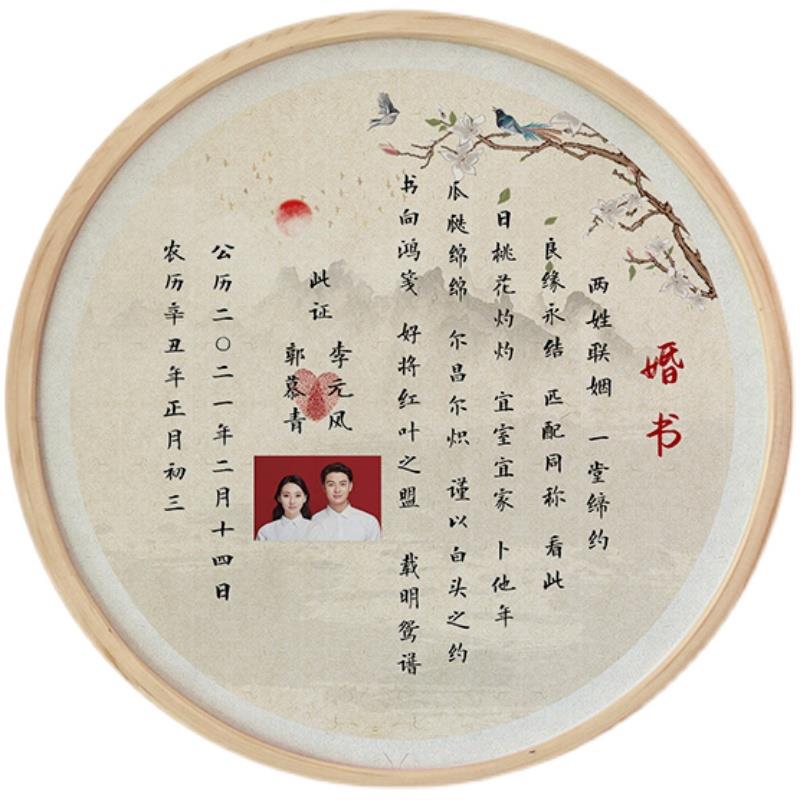 婚书
两姓联姻 一堂缔约
良缘永结 匹配同称 看此
日桃花灼灼 宜室宜家 卜他年
瓜瓞绵绵 尔昌尔炽 谨以白头之约
书向鸿笺 好将红叶之盟 载明鸳谱
此证
李元风
郭慕青
公历二〇二一年二月十四日
农历辛丑年正月初三